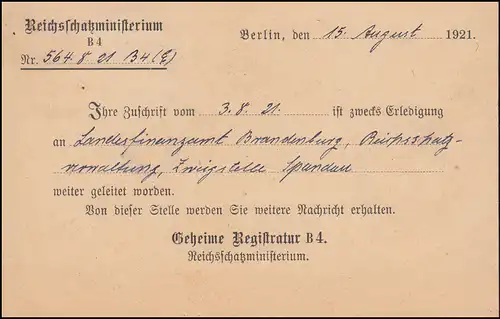 Reichsschatzministerium
B 4
Nr. 564. 8. 21. B4 (E)
Berlin, den 15. August 1921.
Ihre Zuschrift vom 3. 8. 21. ist zwecks Erledigung
an Landesfinanzamt Brandenburg, Reichsschatz-
verwaltung, Zweigstelle Spandau
weiter geleitet worden.
Von dieser Stelle werden Sie weitere Nachricht erhalten.
Geheime Registratur B 4.
Reichsschatzministerium.